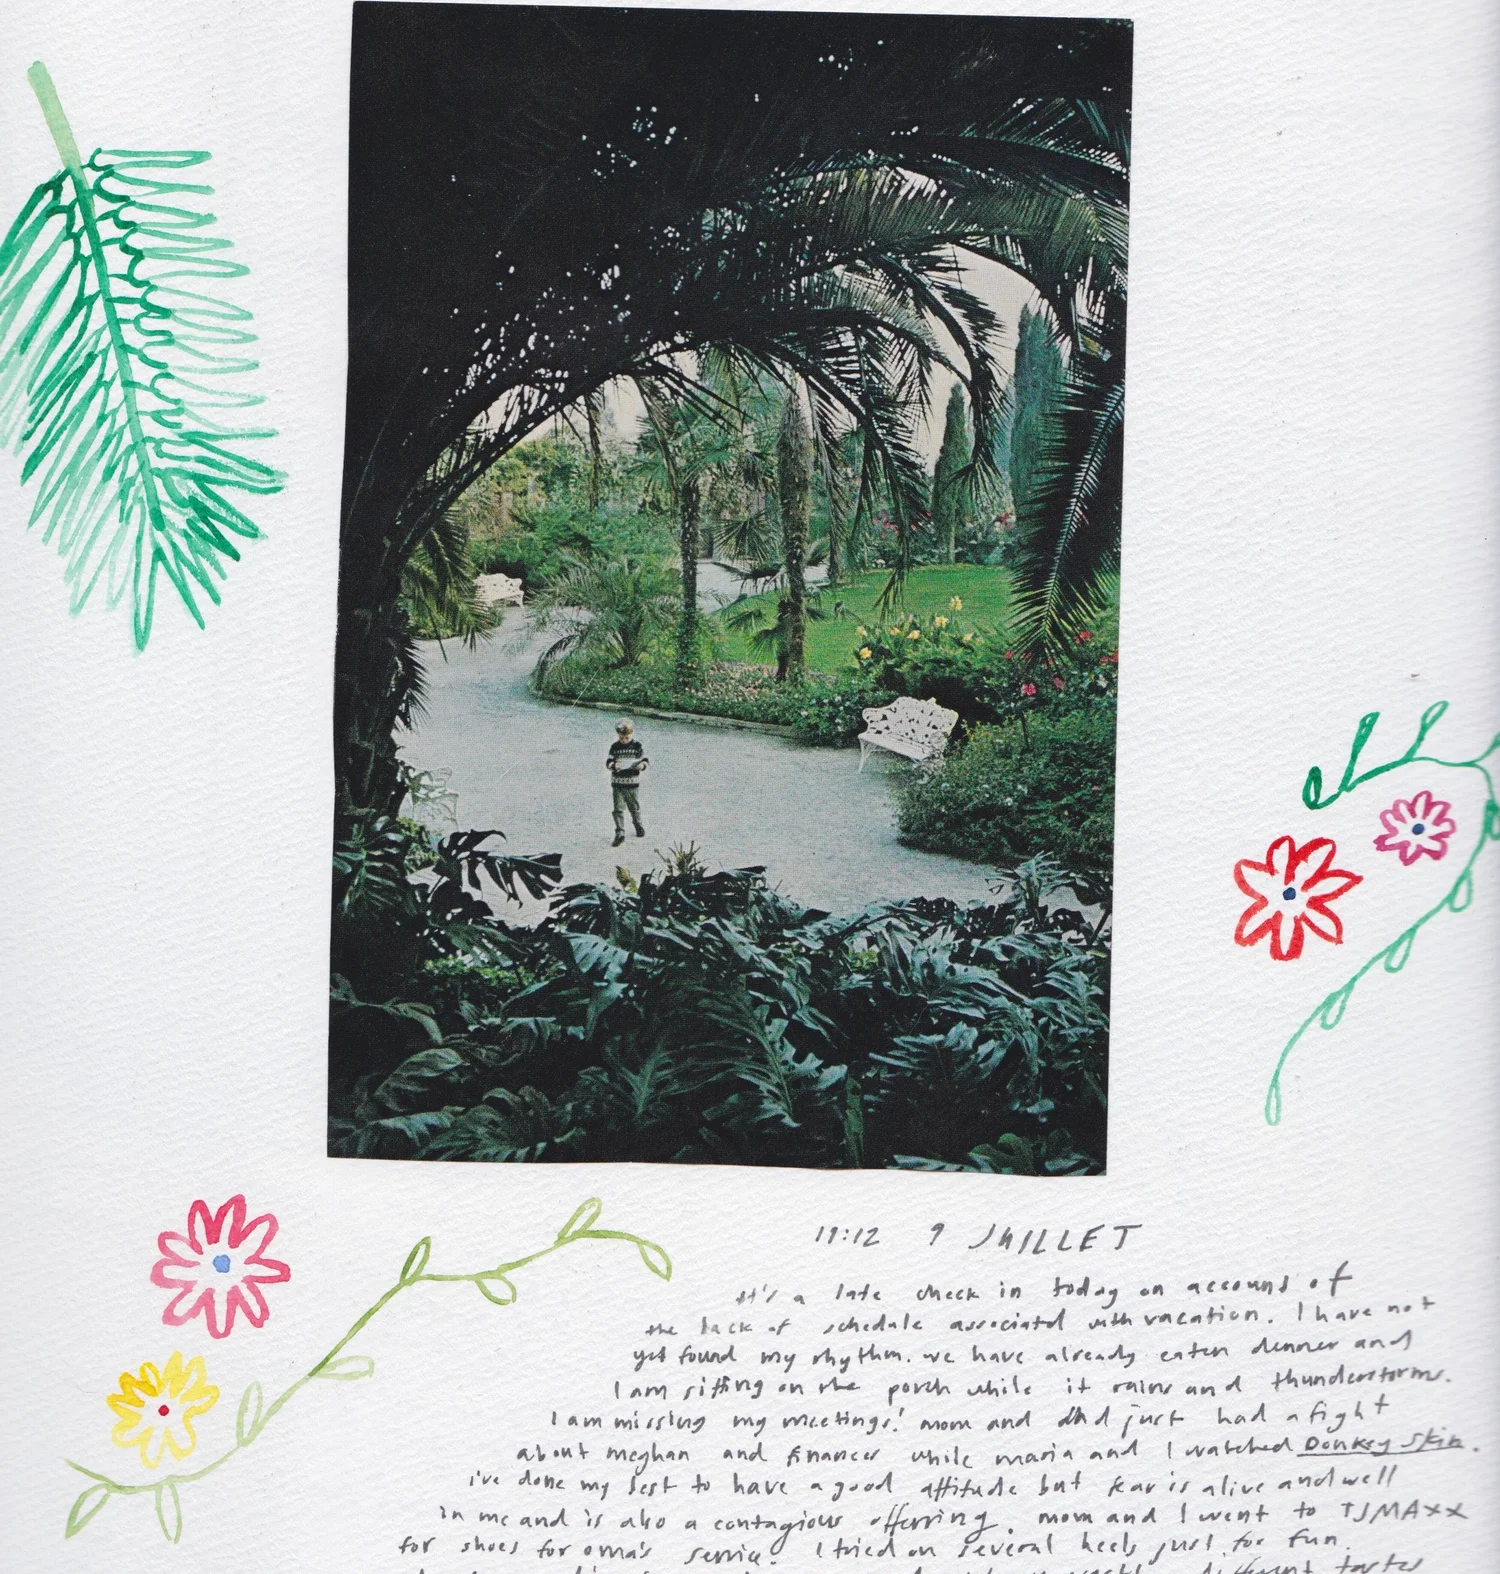 19:12 9 JUILLET
it's a late check in today on account of
the lack of schedule associated with vacation. I have not
yet found my rhythm. we have already eaten dinner and
I am sitting on the porch while it rains and thunderstorms.
I am missing my meetings! mom and dad just had a fight
about meghan and finances while maria and I watched Donkey Skin.
i've done my best to have a good attitude but fear is alive and well
in me and is also a contagious offering. mom and I went to TJMAXX
for shoes for oma's service. I tried on several heels just for fun.
different tastes